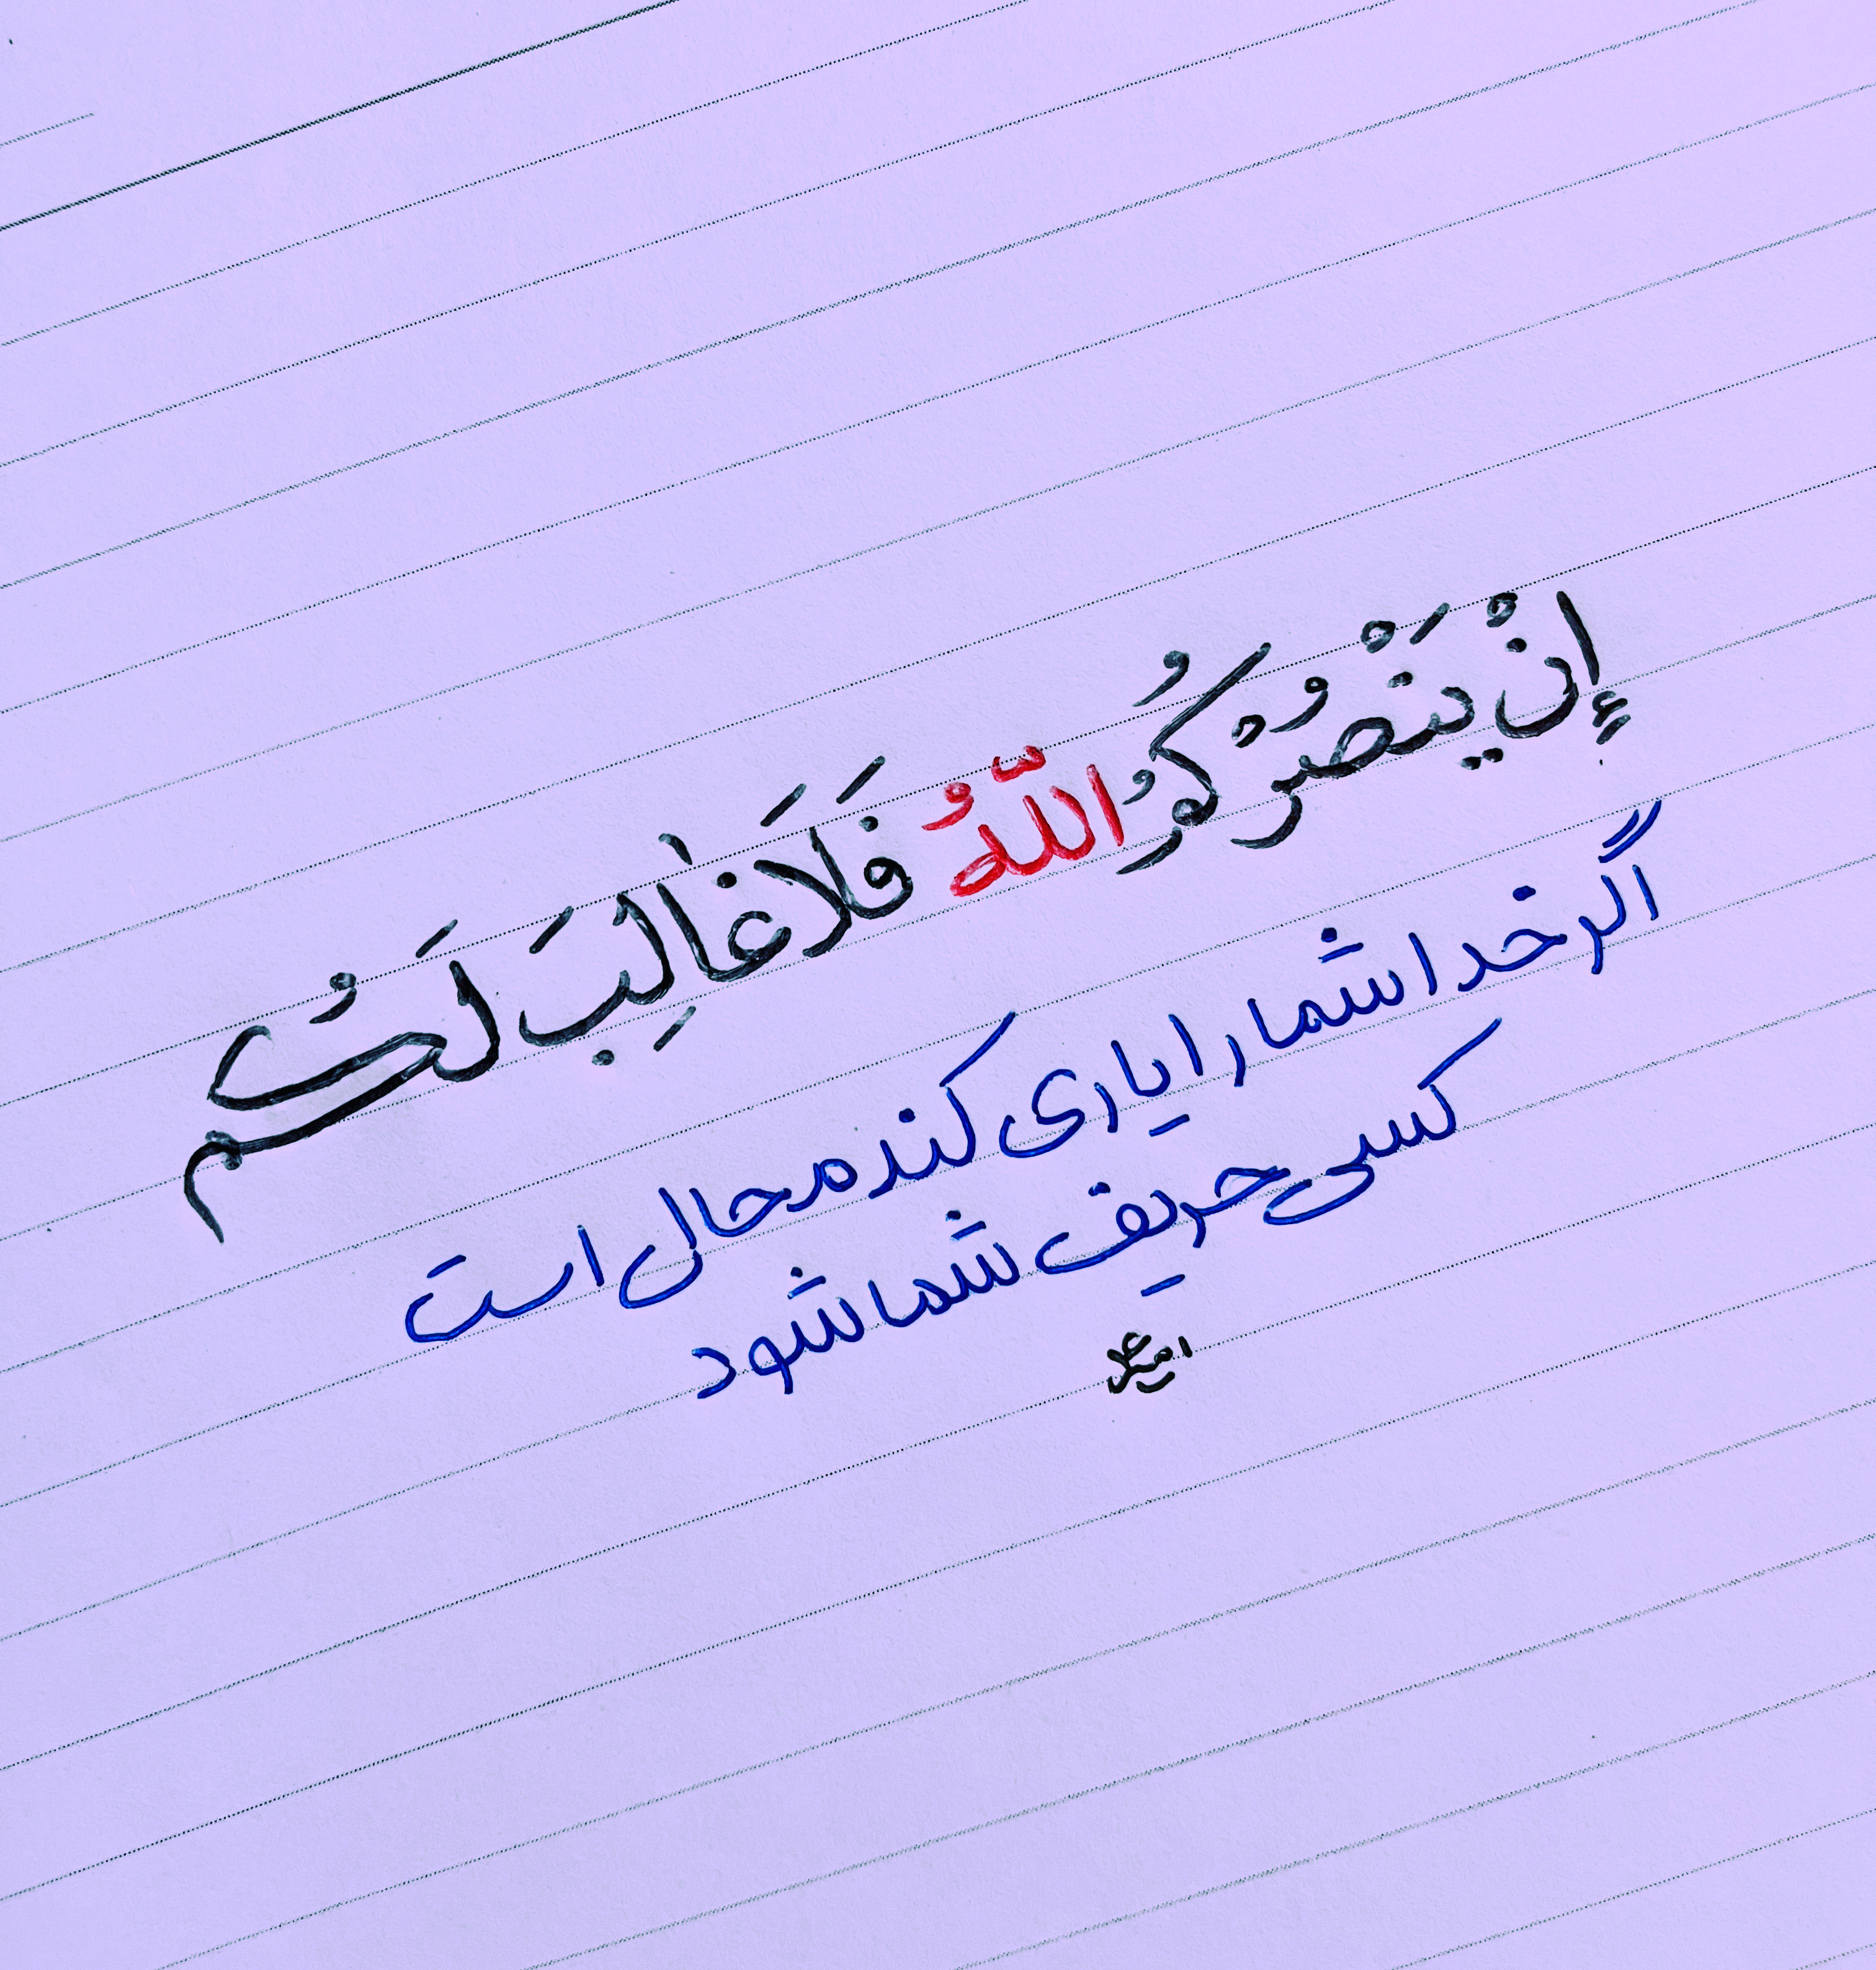 إِنْ يَنْصُرْكُمُ اللّٰهُ فَلَا غَالِبَ لَكُمْ
اگر خدا شما را یاری کند محال است
کسی حریف شما شود